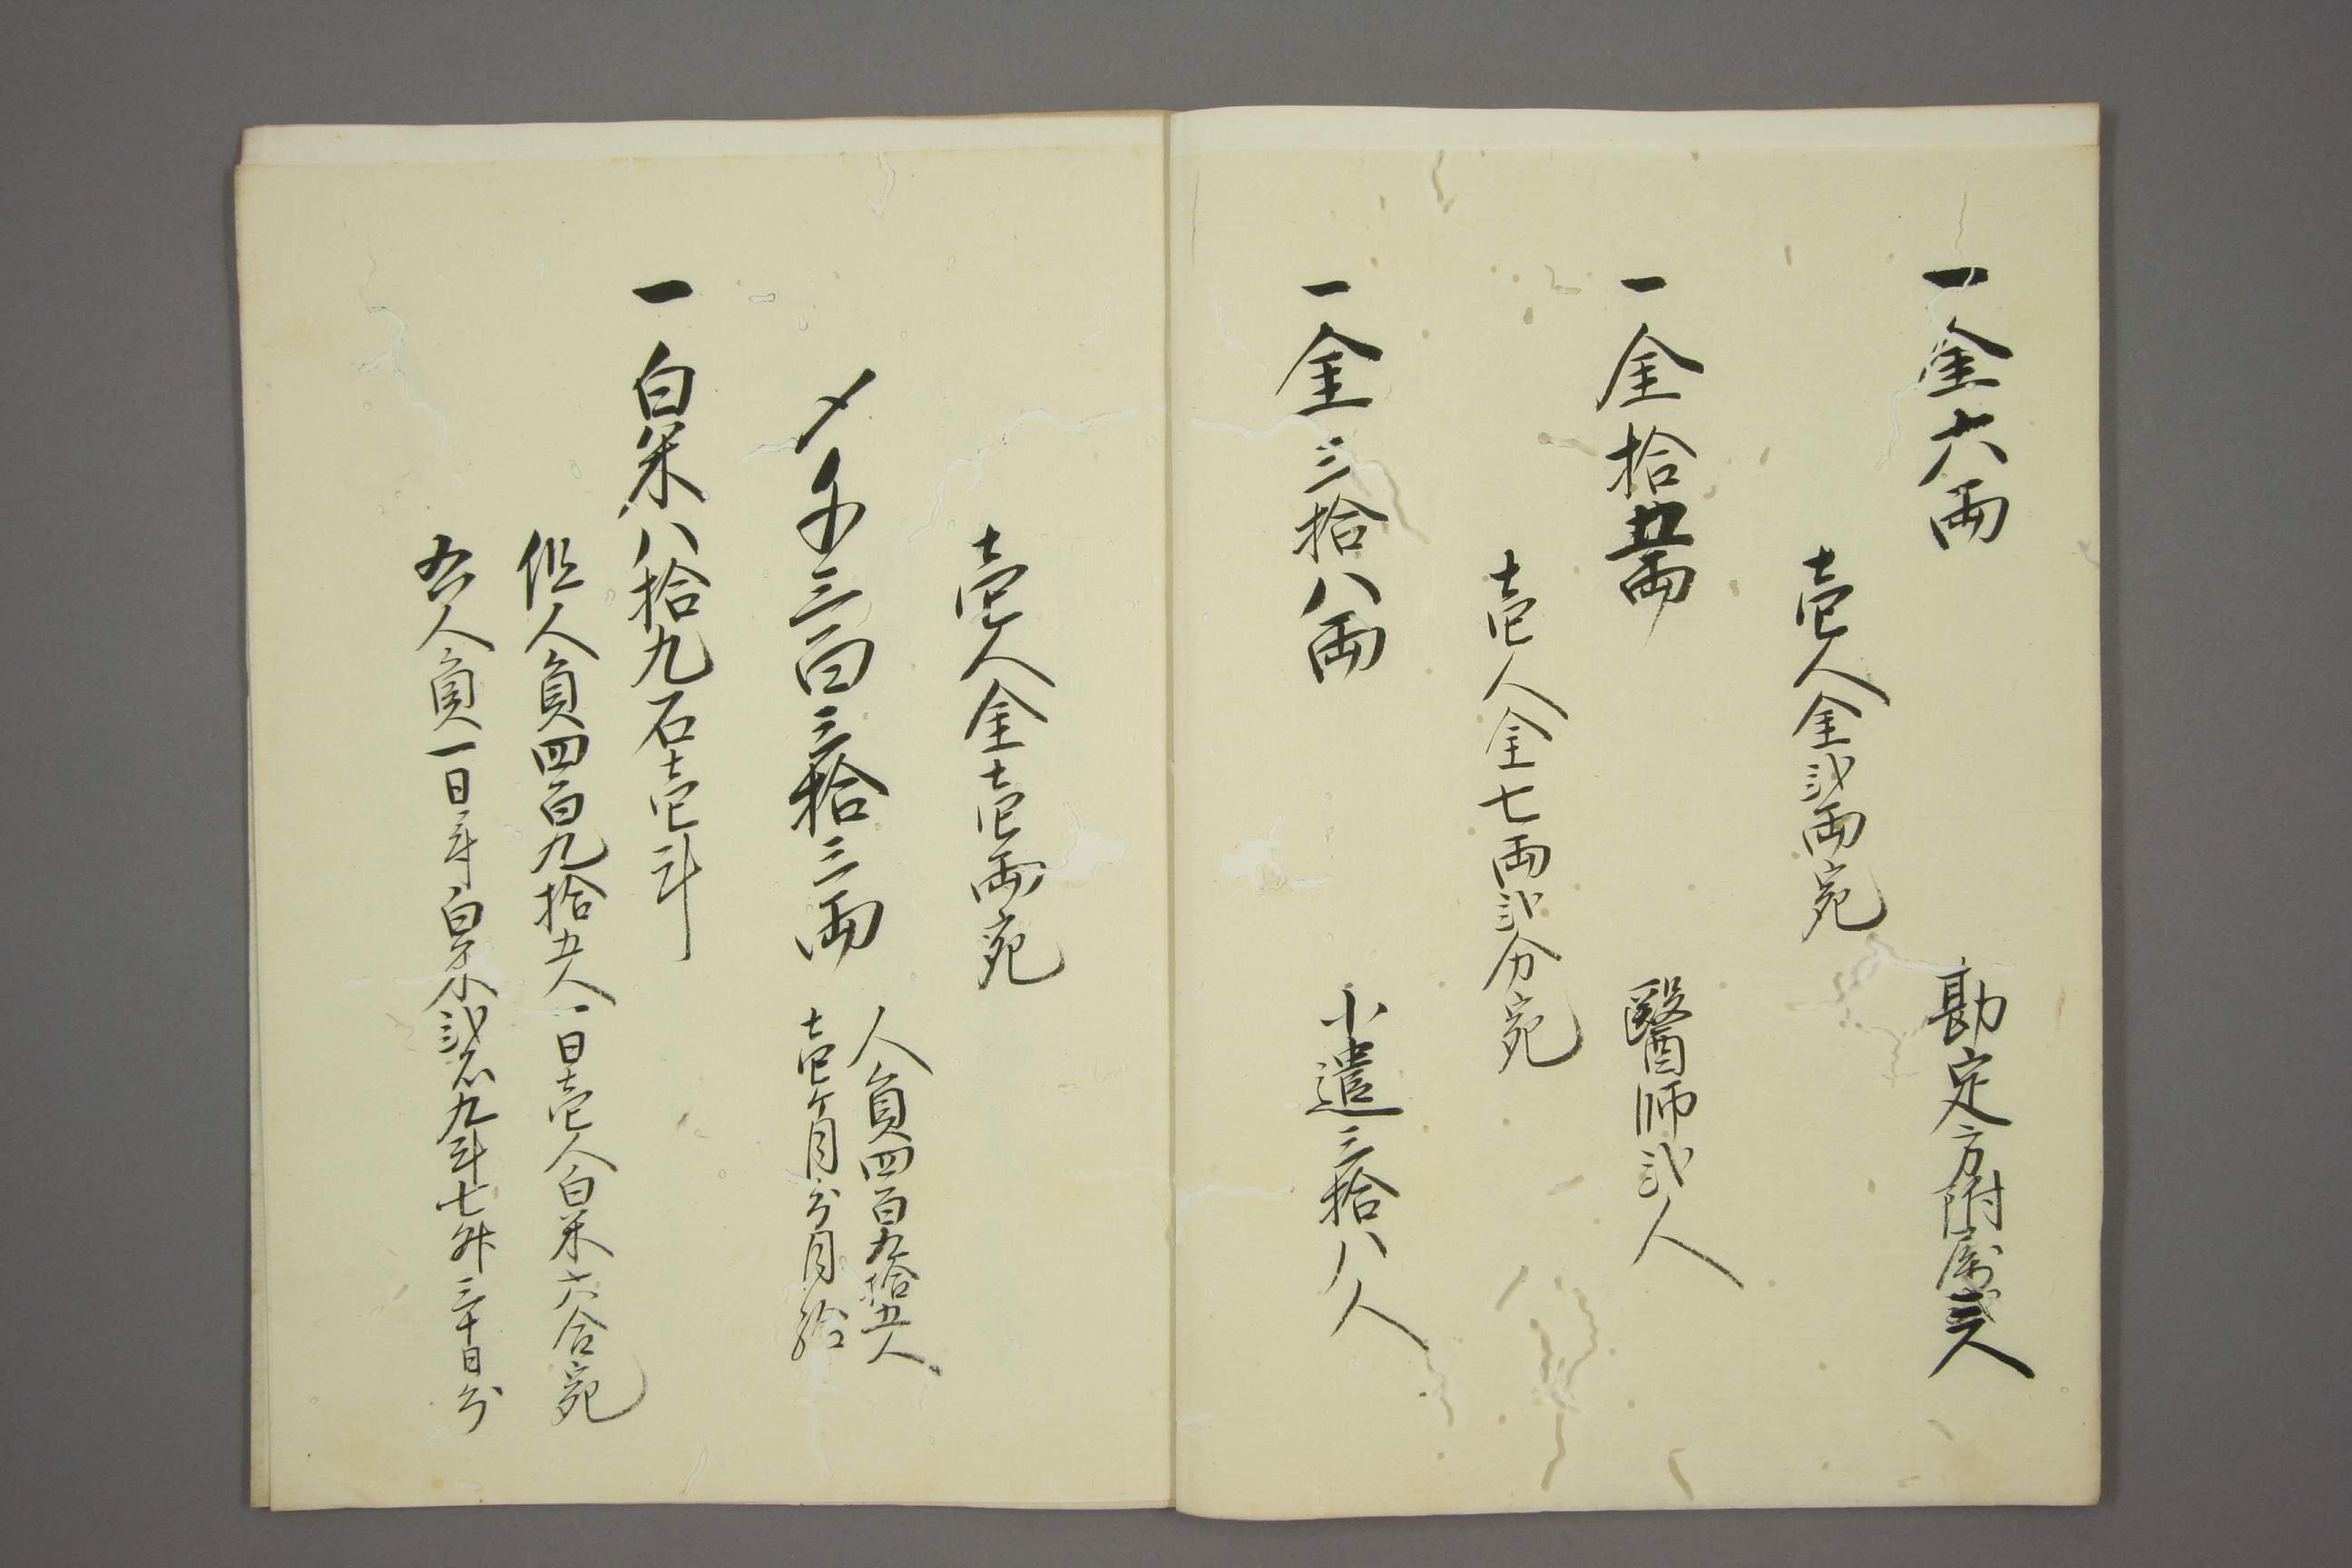 一金六両 勘定方附属三人
壱人金弐両宛
一金拾五両 醫師弐人
壱人金七両弐分宛
一金三拾八両 小遣三拾八人
壱人金壱両宛
〆千三百三拾三両
人員四百九拾五人
壱ケ月分月給
一白米八拾九石壱斗
但人員四百九拾五人一日壱人白米六合宛
右人員一日 白米弐石九斗七升三十日分